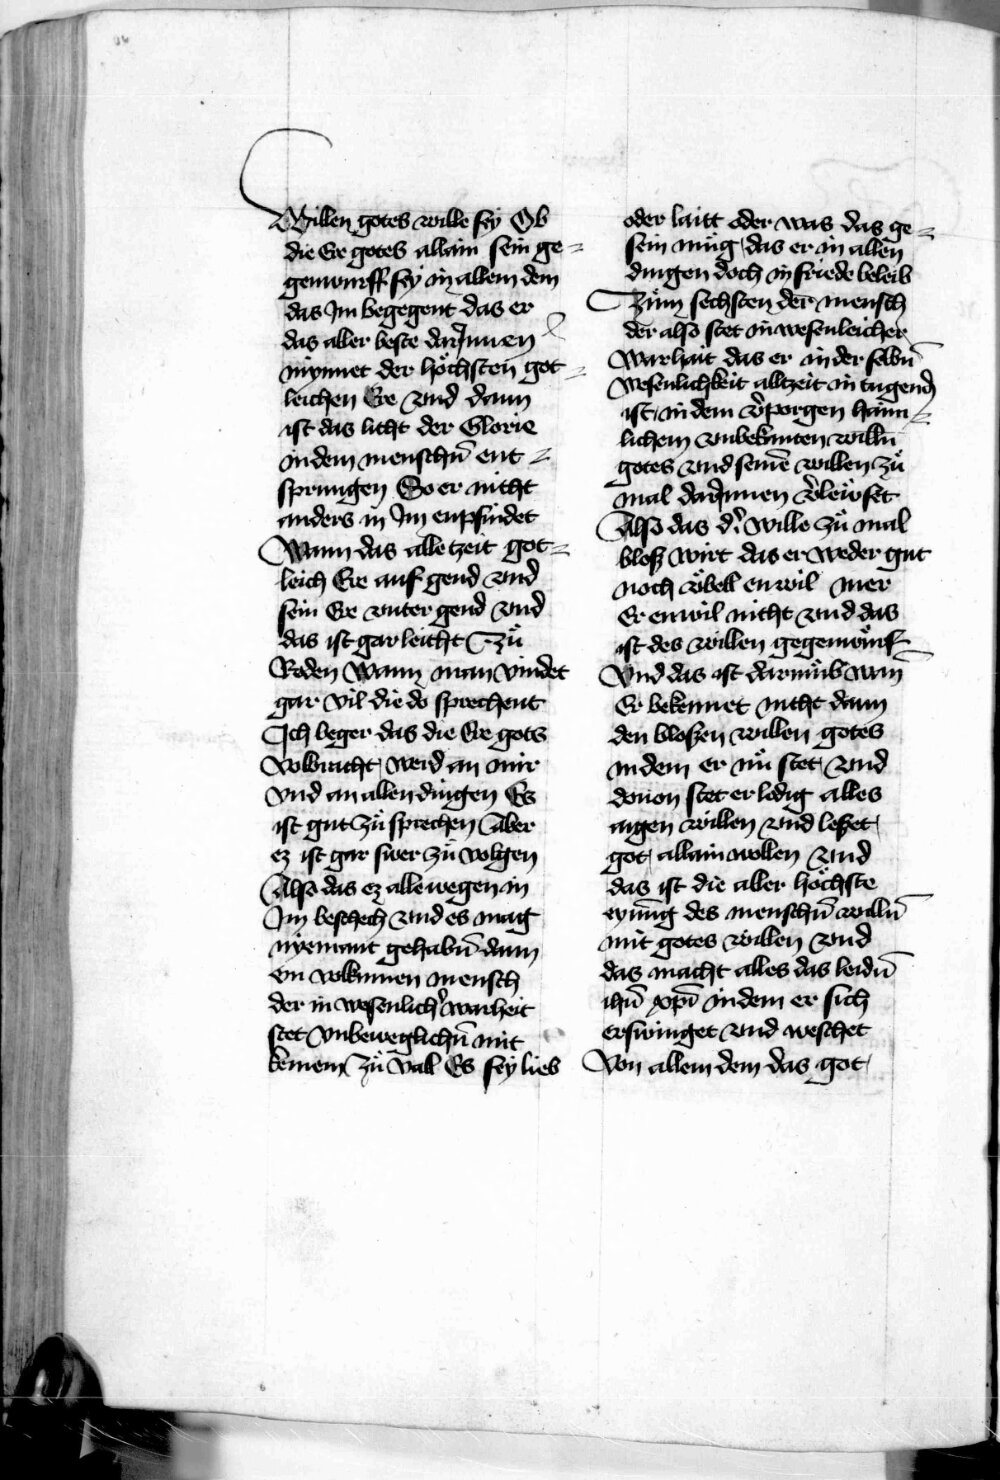 Willen gotes wille sey Ob
die Ere gotes allain sein ge=
genwurff sey in allem dem
das Im begegent das er
das aller beste darJnnen
mynnet der höchsten got=
leichen Ere vnd dann
ist das licht der Glorie
in dem menschen̄ ent=
sprungen So er nicht
anders in Im enpfindet
Wann das alletzeit got=
leich Ere auf gend vnd
sein Ere vnter gend vnd
das ist gar leicht Zů
Reden Wann man vindet
gar vil die do sprechent
Ich beger das die Ere gots
volbracht werd an mir
vnd an allen dingen Es
ist gut zů sprechen Aber
ez ist gar swer zů volgen
Also das ez allewegen in
Im beschech vnd es mag
nyemant gehabn̄ dann
ein volkumen mensch
der in wesenlich̓ warheit
stet vnbeweglichn̄ mit
keinem zů val Es sey lieb
oder laitt oder was das ge=
sein müg das er in allen
dingen doch in friede beleib
Zům sechsten der mensch
der also stet in wesenleicher
warhait das er in der selbn̄
wesenlichkeit alltzeit in tugend
ist in dem v̓porgen haim=
lichem vnbekanten willn̄
gotes vnd seinē willen zů
mal darJnnen v̓leüset
Also das d̓ wille zů mal
blosz wirt das er weder gut
noch übell enwil mer
Er enwil nicht vnd das
ist des willen gegenwürf
Vnd das ist darumb wan̄
Er bekennet nicht dann
den bloszen willen gotes
in dem er nů stet vnd
dauon stet er ledig alles
aigen willen vnd leszet
got allain wollen vnd
das ist die aller höchste
eynūg des menschn̄ willn̄
mit gotes willen vnd
das macht alles das leidn̄
ihū xpī in dem er sich
erswinget vnd weschet
Von allem dem das got